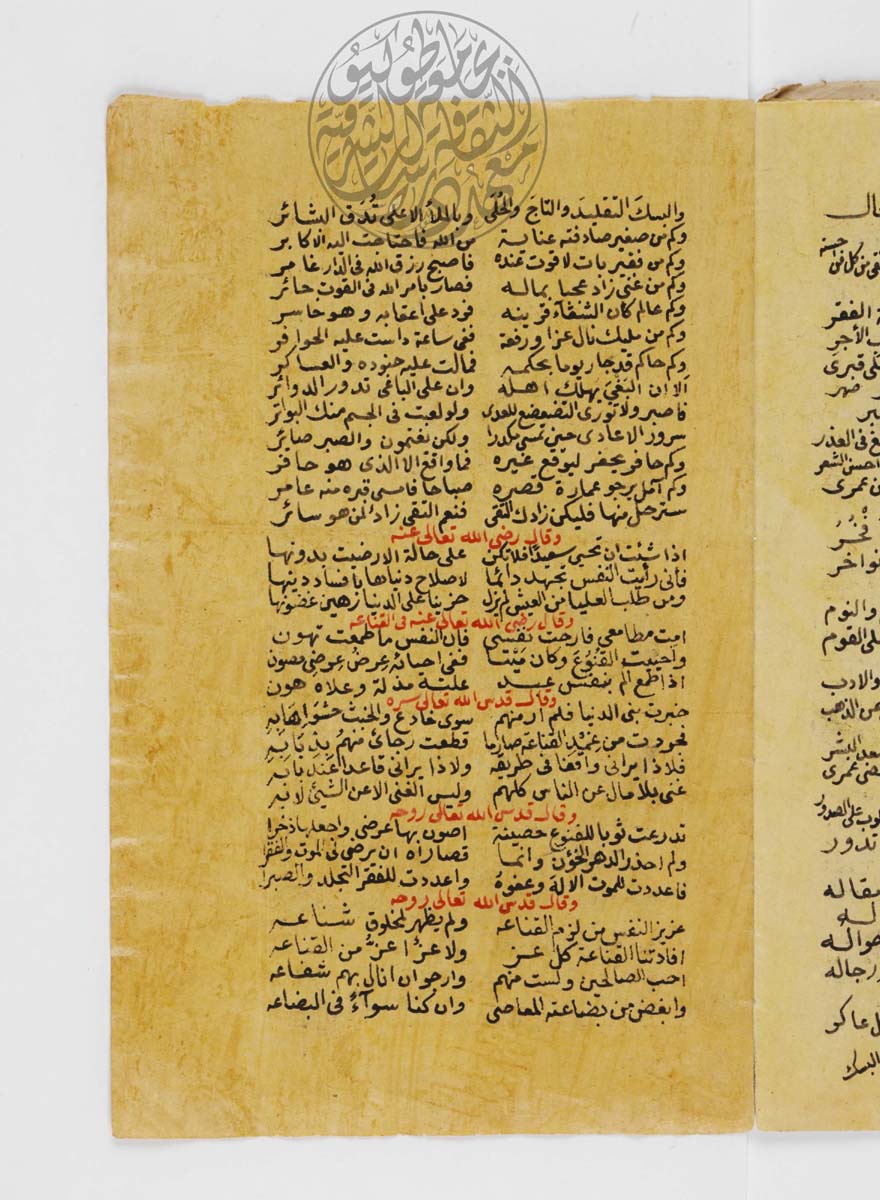 والبسك التقليد والتاج والحُلَى وبالملأ الاعلى تُدَق البشائر
وكم من صغير صادفته عناية من الله فاحتاجت اليه الاكابر
وكم من فقير بات لا قوت عنده فاصبح رزق الله فى الدار غامر
وكم من غنى زاد عجبا بماله فصار بامر الله فى القوت حائر
وكم عالم كان الشقآء قرينه فرد على اعقابه وهو خاسر
وكم من مليك نال عزا ورفعة ففى ساعة داست عليه الحوافر
وكم حاكم قد جار يوما بحكمه فمالت عليه جنوده والعساكر
الا ان البَغْىَ يهلك اهله وان على الباغى تدور الدوائر
فاصبر ولا تورى التضعضع للعدى ولو لعبت فى الجسم منك البواتر
سرور الاعادى حين تمسى مكدرا ولكن يغتمون والصبر صاير
وكم حافر يحفر ليوقع غيره فما واقع الا الذى هو حافر
وكم آمل يرجو عمارة قصره صباحا فامسى قبره منه عامر
سترحل منها فليكن زادك التقى فنعم التقى زاد لمن هو سائر
وقال رضى الله تعالى عنه
اذا شئت ان تحيى سعيدا فلا تكن على حالة الا رضيت بدونها
فانى رأيت النفس تجهد دائما لاصلاح دنياها بافساد دينها
ومن طلب العليا من العيش لم يزل حزينا على الدنيا رهين غضونها
وقال رضى الله تعالى عنه فى القناعه
امت مطامعى فارحت نفسى فان النفس ما طمعت تهون
واحييت القُنُوعَ وكان مَيْتا ففى احيائه عِرضُ عِرضى مصون
اذا طمع الم بنفس عبد علته مذلة وعلاه هون
وقال قدس الله تعالى سره
خبرت بنى الدنيا فلم ار منهم سوى خادع والخبث حشو اهابه
فجردت من غمد القناعة صارما قطعت رجائ منهم بذبابه
فلا ذا يرانى واقفا فى طريقه ولا ذا يرانى قاعدا عند بابه
غنى بلا مال عن الناس كلهم وليس الغنى الا عن الشيئ لا به
وقال قدس الله تعالى روحه
تدرعت ثوبا للقنوع حصينة اصون بها عرضى واجعلها ذخرا
ولم احذر الدهر الخؤن وانما قصاراه ان يرضى لى الموت والفقرا
فاعددت للموت الاله وعفوه واعددت للفقر التجلد والصبرا
وقال قدس الله تعالى روحه
عزيز النفس من لزم القناعه ولم يظهر لمخلوق شناعه
افادتنا القناعة كل عز ولا عزًا اعزُّ من القناعه
احب الصالحين ولست منهم وارجو ان انال بهم شفاعه
وابغض من بضاعته المعاصى وان كنا سوآءً فى البضاعه